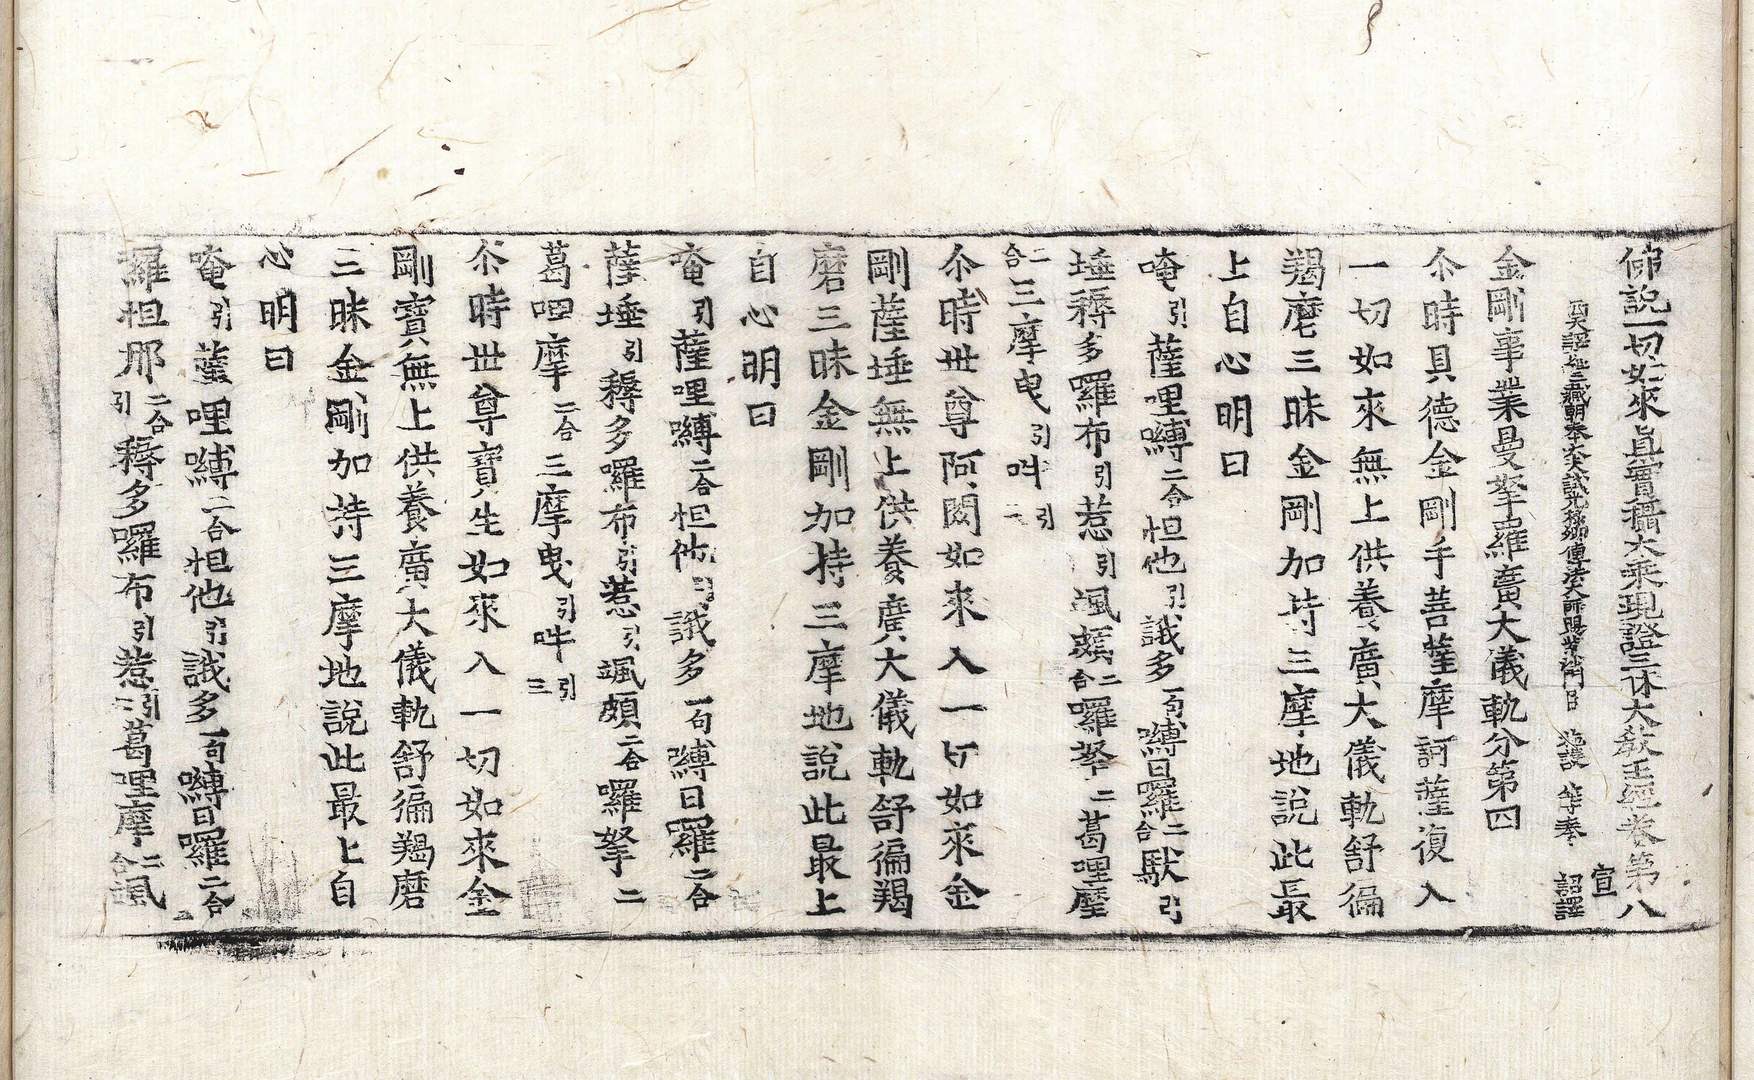 佛說一切如來眞實攝大乘現證三昧大敎王經卷第八 宣
西天譯經三藏朝奉大夫試光祿卿傳法大師賜紫沙門臣 施護 等奉 詔譯
金剛事業曼拏羅廣大儀軌分第四
尒時具德金剛手菩薩摩訶薩復入
一切如來無上供養廣大儀軌舒徧
羯磨三昧金剛加持三摩地說此最
上自心明曰
唵引薩哩嚩二合怛他引誐多一句嚩日囉二合馱引
埵耨多囉布引惹引颯頗二合囉拏二葛哩摩
二合三摩曳引吽引二
尒時世尊阿閦如來入一切如來金
剛薩埵無上供養廣大儀軌舒徧羯
磨三昧金剛加持三摩地說此最上
自心明曰
唵引薩哩嚩二合怛他引誐多一句嚩日囉二合
薩埵引耨多囉布引惹引颯頗二合囉拏二
葛哩摩二合三摩曳引吽引三
尒時世尊寶生如來入一切如來金
剛寶無上供養廣大儀軌舒徧羯磨
三昧金剛加持三摩地說此最上自
心明曰
唵引薩哩嚩二合怛他引誐多一句嚩日囉二合
羅怛那二合引耨多囉布引惹引葛哩摩二合颯